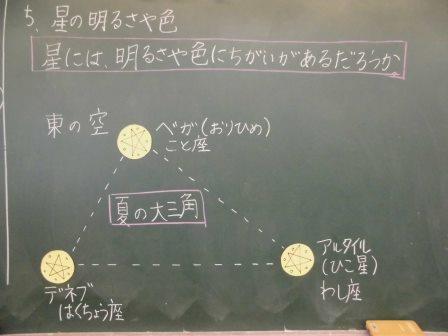 5、星の明るさや色
星には、明るさや色にちがいがあるだろうか
東の空
ベガ(おりひめ)
こと座
夏の大三角
デネブ
はくちょう座
アルタイル
(ひこ星)
わし座